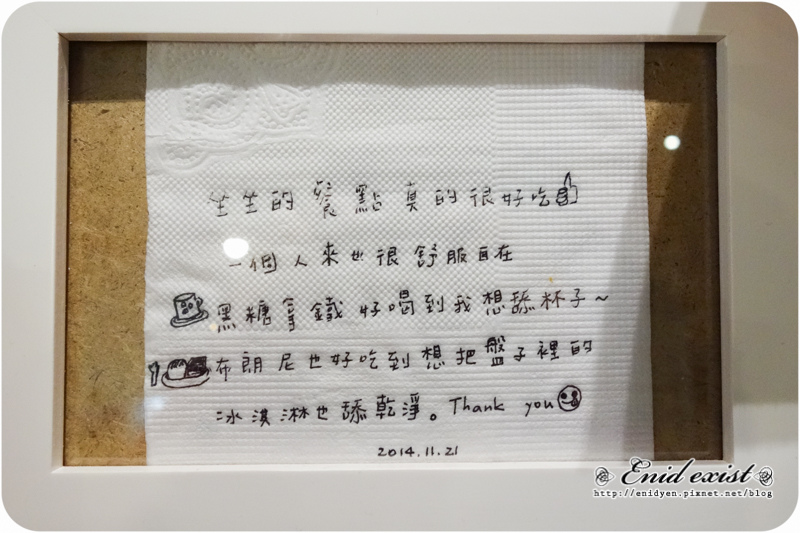 坐坐的餐點真的很好吃
一個人來也很舒服自在
黑糖拿鐵好喝到我想舔杯子~
布朗尼也好吃到想把盤子裡的
冰淇淋也舔乾淨。Thank you
2014.11.21
Enid exist
http://enidyen.pixnet.net/blog